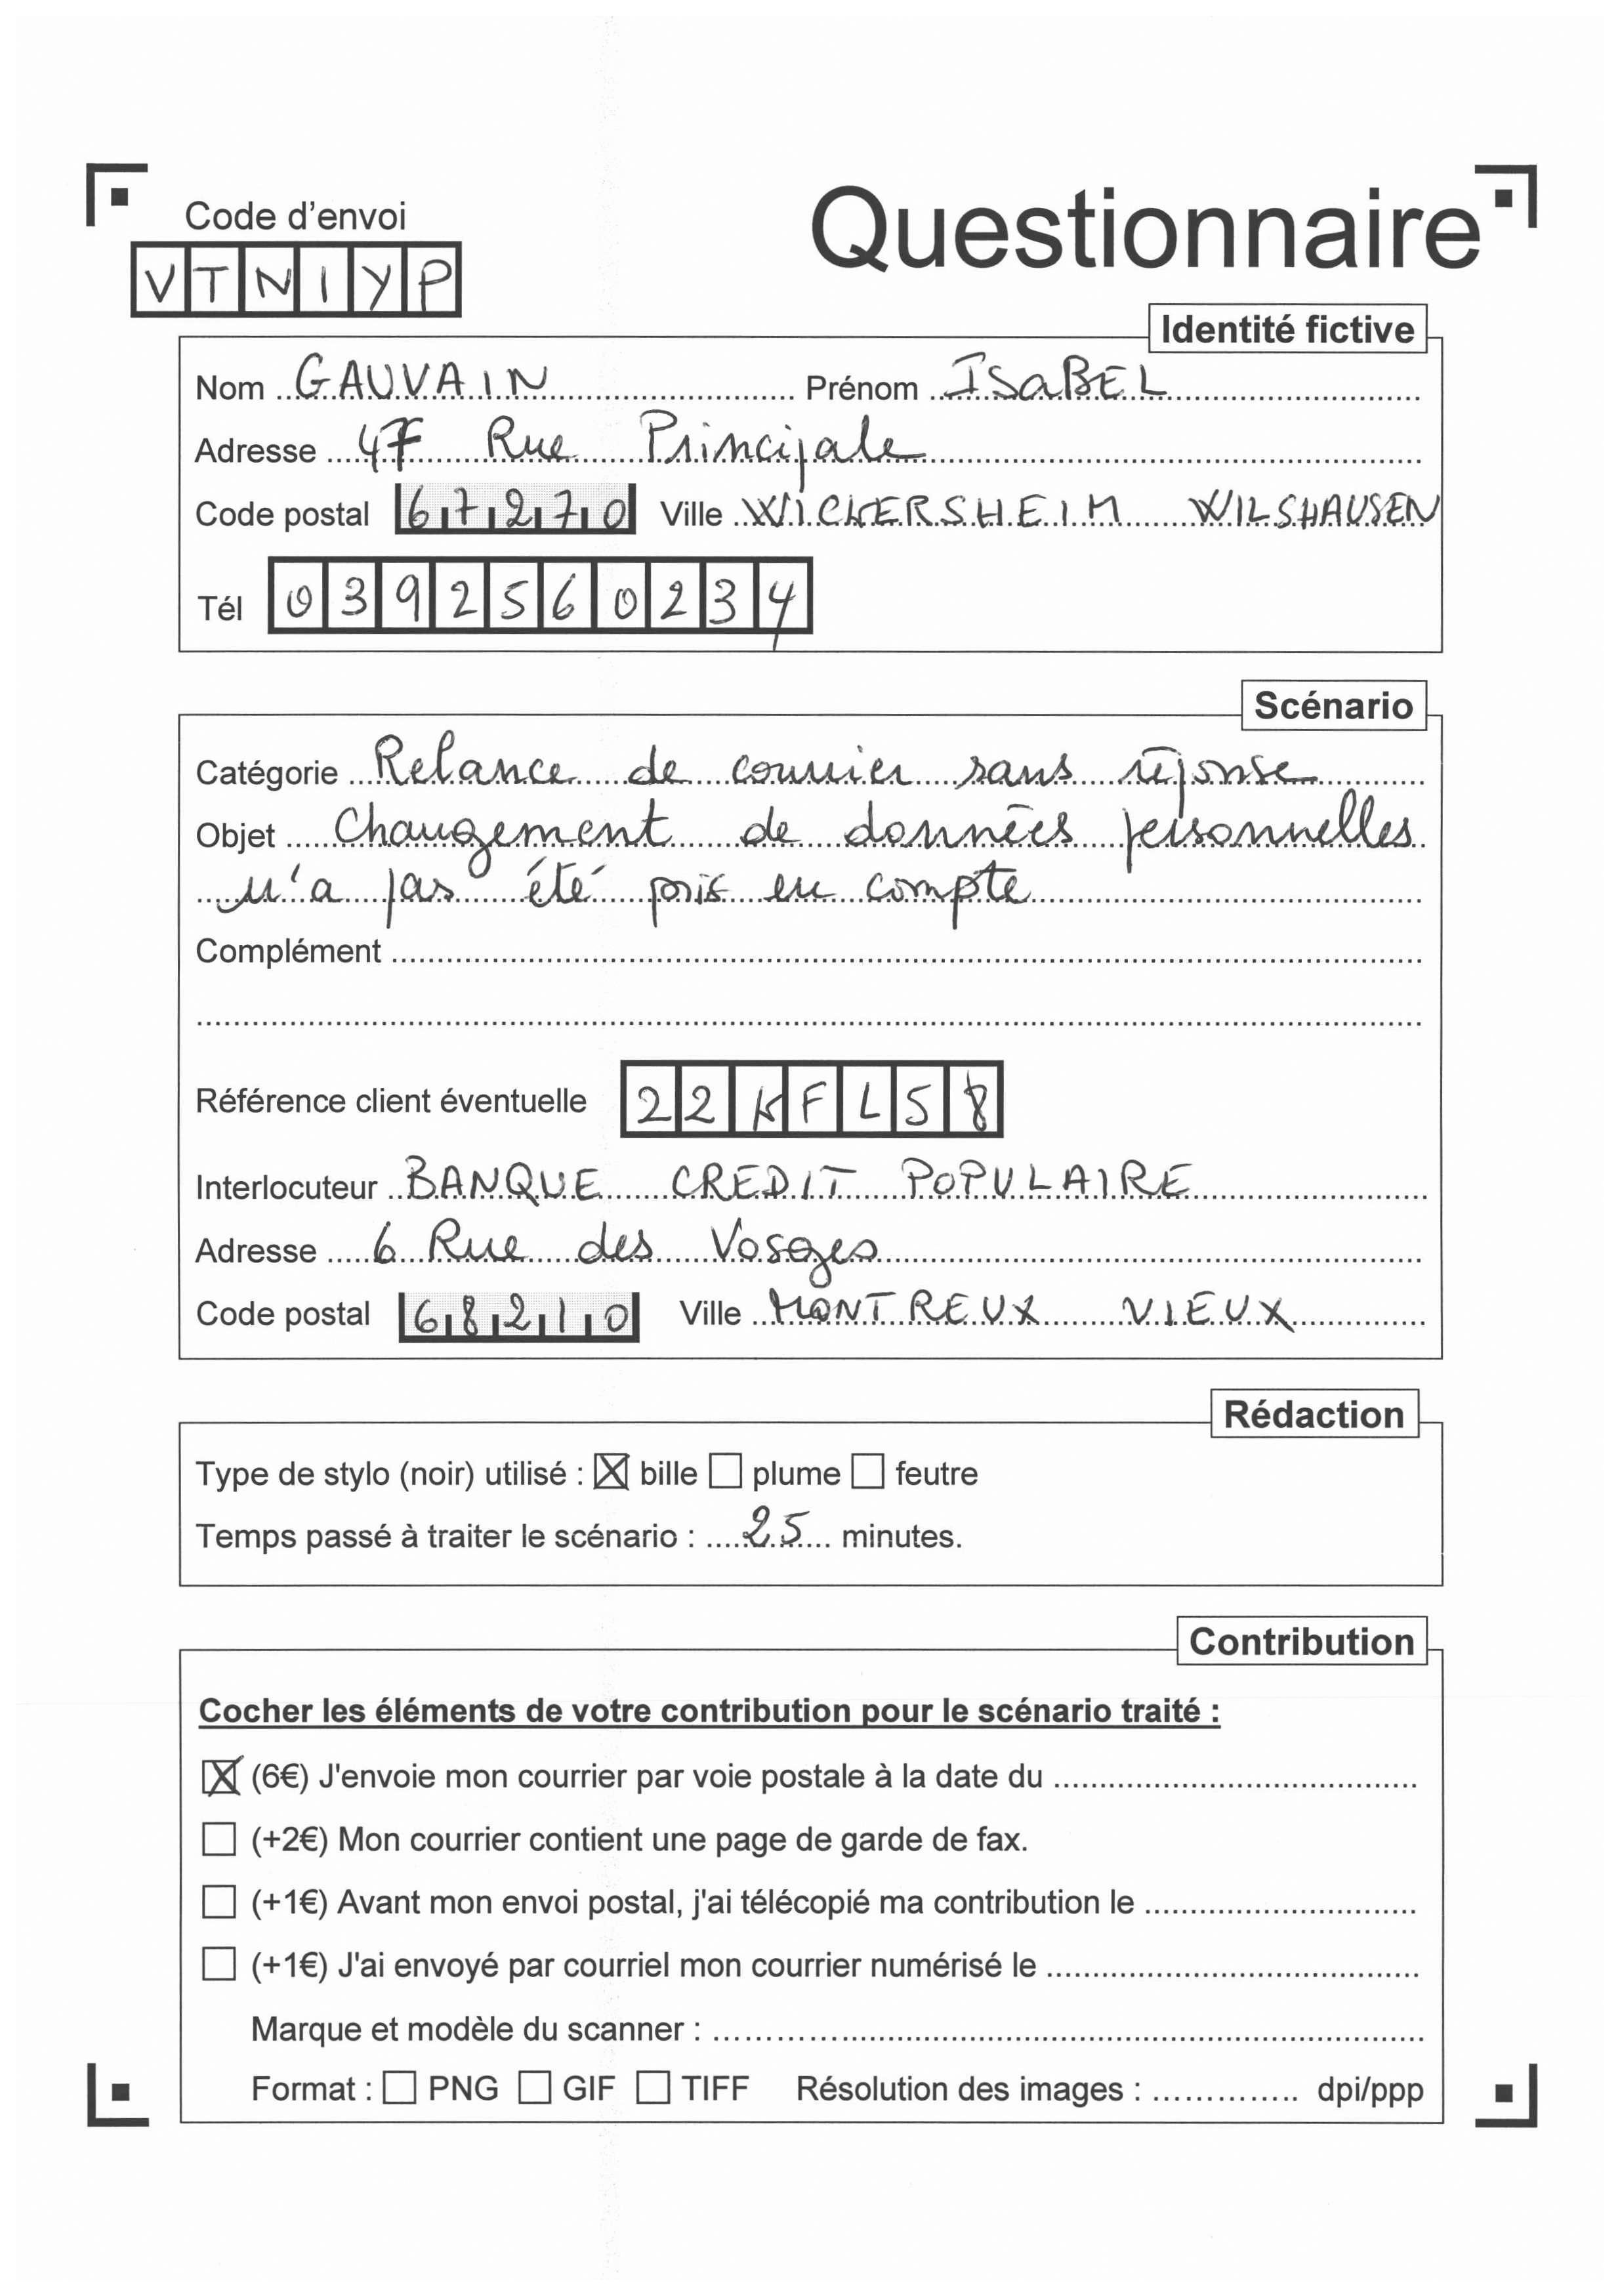 Code d'envoi
VTNIYP
Questionnaire
Identité fictive
Nom GAUVAIN Prénom ISaBEL
Adresse 47 Rue Principale
Code postal 67270 Ville WICKERSHEIM WILSHAUSEN
Tél 0392560234
Scénario
Catégorie Relance de courrier sans réponse
Objet Changement de données personnelles
n'a pas été pris en compte
Complément
Référence client éventuelle 22KFL58
Interlocuteur BANQUE CREDIT POPULAIRE
Adresse 6 Rue des Vosges
Code postal 68210 Ville MONTREUX VIEUX
Rédaction
Type de stylo (noir) utilisé : ☒ bille ☐ plume ☐ feutre
Temps passé à traiter le scénario : 25 minutes.
Contribution
Cocher les éléments de votre contribution pour le scénario traité :
☒ (6€) J'envoie mon courrier par voie postale à la date du
☐ (+2€) Mon courrier contient une page de garde de fax.
☐ (+1€) Avant mon envoi postal, j'ai télécopié ma contribution le
☐ (+1€) J'ai envoyé par courriel mon courrier numérisé le
Marque et modèle du scanner :
Format : ☐ PNG ☐ GIF ☐ TIFF Résolution des images : dpi/ppp